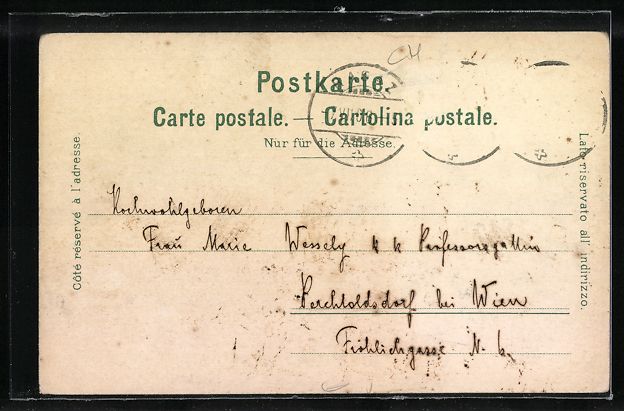 CH
Postkarte.
Carte postale. — Cartolina postale.
Nur für die Adresse.
Côté réservé à l'adresse.
Lato riservato all' indirizzo.
Hochwohlgeboren
Frau Marie Wessely k k Professorsgattin
Perchtoldsdorf bei Wien
Fröhlichgasse N.